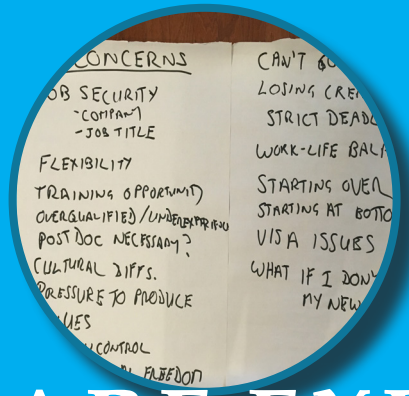 CONCERNS
JOB SECURITY
- COMPANY
- JOB TITLE
FLEXIBILITY
TRAINING OPPORTUNITY
OVERQUALIFIED/UNDEREXPERIENCED
POSTDOC NECESSARY?
CULTURAL DIFFS.
PRESSURE TO PRODUCE
CONTROL
FREEDOM
CAN'T
LOSING
STRICT
WORK-LIFE
STARTING OVER
STARTING AT
VISA ISSUES
WHAT IF I
MY NEW